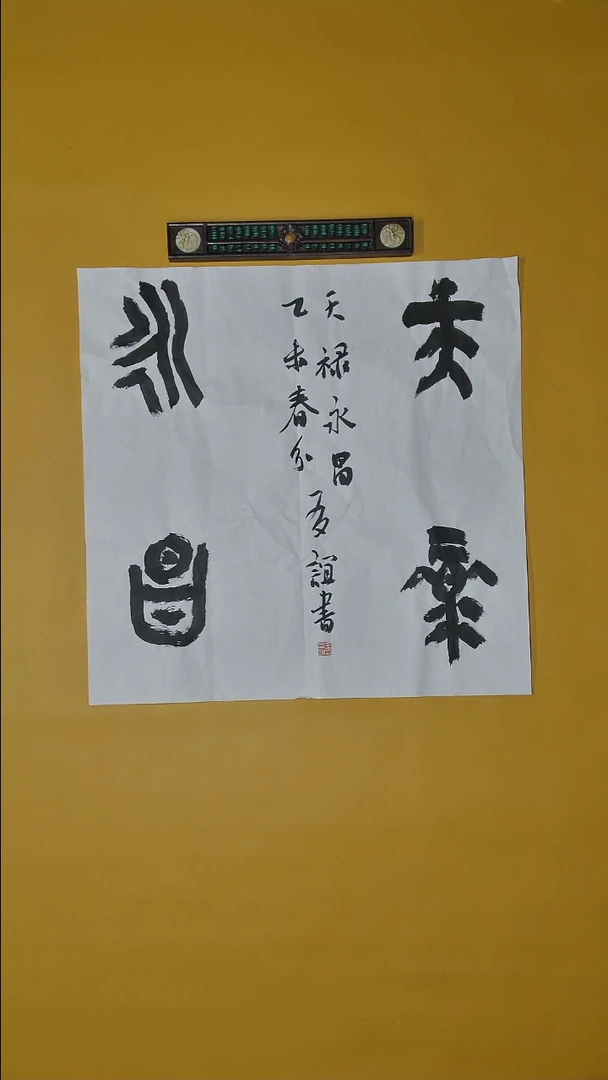 天彔
永昌
天禄永昌
乙未春分
誼書